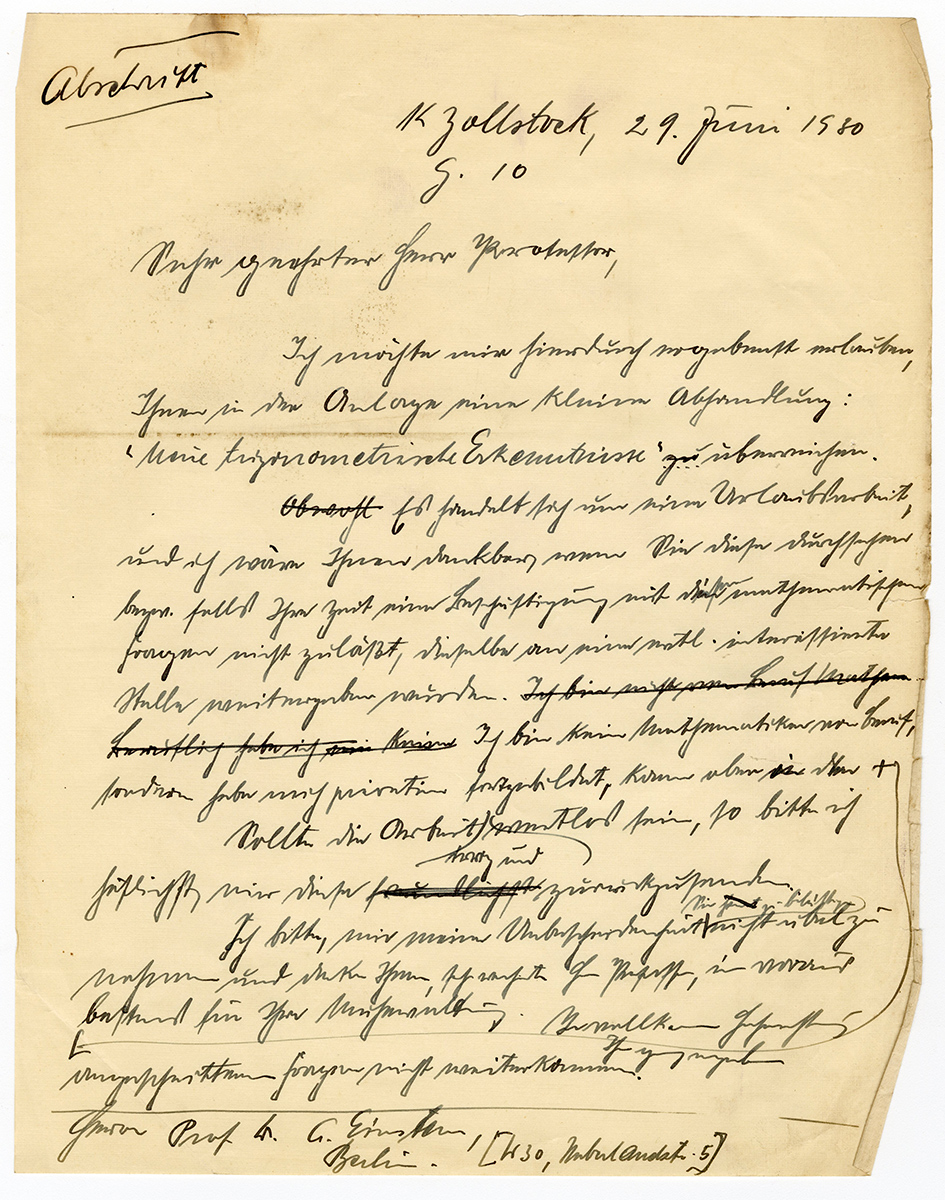 Abschrift
K Zollstock, 29. Juni 1930
G. 10
Sehr geehrter Herr Professor,
Ich möchte mir hierdurch ergebenst erlauben,
Ihnen in der Anlage eine kleine Abhandlung:
"Neue trigonometrische Erkenntnisse" zu überreichen.
Obwohl Es handelt sich um eine Urlaubsarbeit,
und ich wäre Ihnen dankbar, wenn Sie diese durchsehen
bezw. falls Ihre Zeit eine Beschäftigung mit diesen mathematischen
Fragen nicht zuläßt, dieselbe an eine evtl. interessierte
Stelle weitergeben würden. Ich bin nicht von Beruf Mathem
Beruflich habe ich keine Ich bin kein Mathematiker von Beruf,
sondern habe mich privatim fortgebildet, kann aber in den +
Sollte die Arbeit wertlos sein, so bitte ich
kurz und
höflichst, mir diese freundlichst zurückzusenden.
Ich bitte, mir meine Unbescheidenheit nicht übel zu
nehmen und danke Ihnen, sehr geehrter H Profess, im voraus
bestens für Ihre Mühewaltung. In vollkom Hochachtung
Ihr ganz ergeb
angeschnittenen Fragen nicht weiterkommen.
Herrn Prof. Dr. A. Einstein,
Berlin. [W30, Haberlandstr. 5]